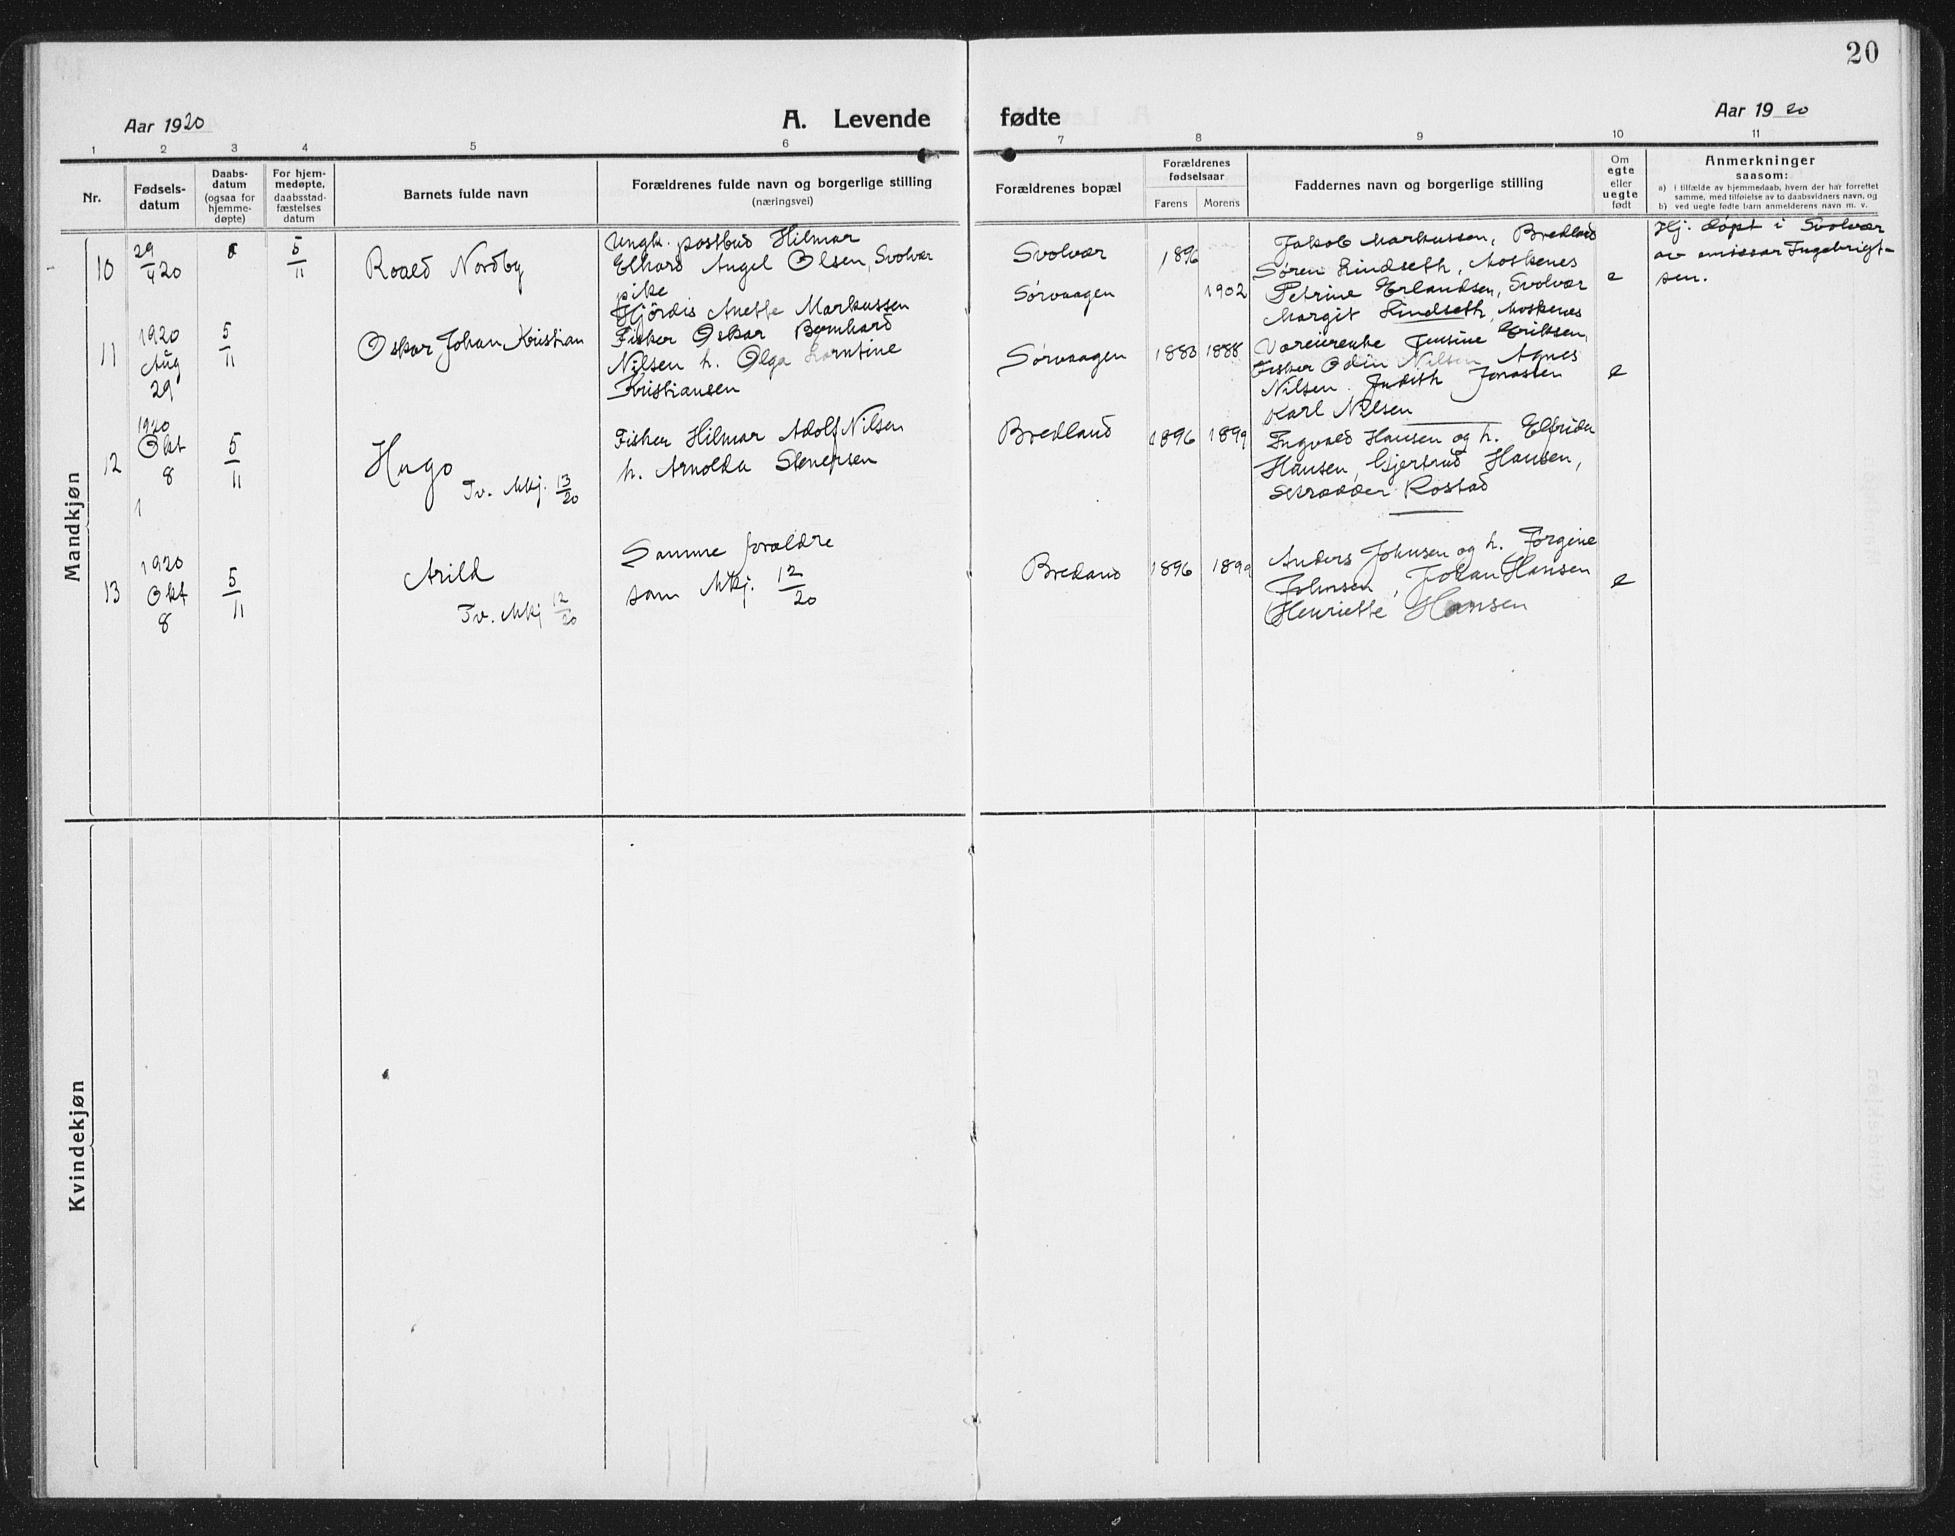 20
Aar 1920
A. Levende fødte
Aar 1920
1 2 3 4 5 6 7 8 9 10 11
Nr.
Fødsels-
datum
Daabs-
datum
(ogsaa for
hjemme-
døpte)
For hjem-
medøpte,
daabsstad-
fæstelses
datum
Barnets fulde navn
Forældrenes fulde navn og borgerlige stilling
(næringsvei)
Forældrenes bopæl
Forældrenes
fødselsaar
Farens Morens
Faddernes navn og borgerlige stilling
Om
egte
eller
uegte
født
Anmerkninger
saasom:
a) i tilfælde av hjemmedaab, hvem der har forrettet
samme, med tilføielse av to daabsvidners navn, og
b) ved uegte fødte barn anmelderens navn m. v.
Mandkjøn
10
29/4 20
5/11
Roald Nordby
Ungk. postbud Hilmar
Elhard Angel Olsen, Svolvær
pike
Hjördis Anette Markussen
Svolvær
Sørvaagen
1896
1902
Jakob Markussen, Bredland
Søren Lindseth, Moskenes
Petrine Erlandsen, Svolvær
Margit Lindseth, Moskenes
e
Hj. døpt i Svolvær
av emissær Ingebrigt-
sen.
11
1920
Aug
29
5/11
Oskar Johan Kristian
Fisker Oskar Bernhard
Nilsen h. Olga Larntine
Kristiansen
Sørvaagen
1883 1888
Jensine Eriksen,
Fisker Odin Nilsen, Agnes
Nilsen. Judith Jonassen
Karl Nilsen
e
12
1920
Okt
8
1
5/11
Hugo
Tv. Mkj. 13/20
Fisker Hilmar Adolf Nilsen
h. Arnolda Stenersen
Bredland
1896 1899
Ingvald Hansen og h. Elfrida
Hansen, Gjertrud Hansen,
Rostad
13
1920
Okt
8
5/11
Arild
Tv. Mkj 12/20
Samme foraldre
som Mkj. 12/20
Bredand
1896 1899
Anders Johnsen og h. Jørgine
Johnsen, Johan Hansen
Henriette Hansen
e
Kvindekjøn